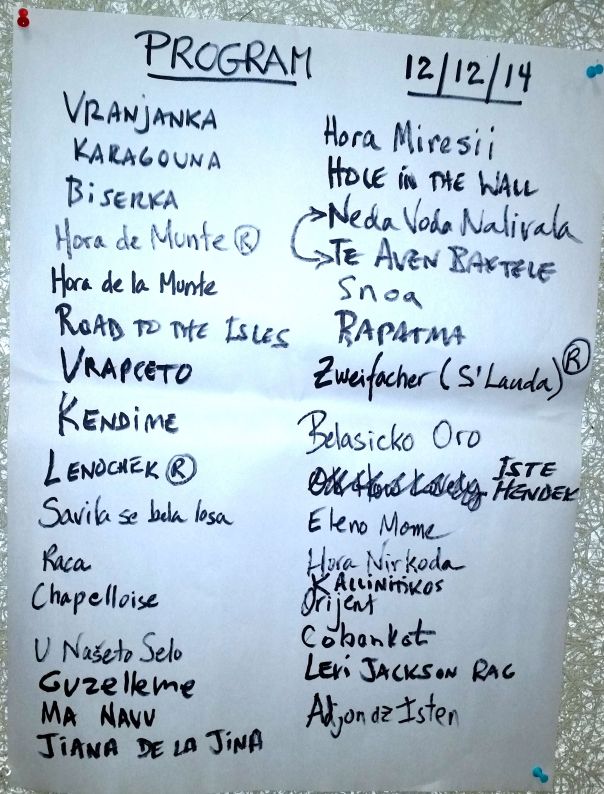 PROGRAM
12/12/14
VRANJANKA
KARAGOUNA
BISERKA
Hora de Munte ®
Hora de la Munte
ROAD TO THE ISLES
VRAPCETO
KENDIME
LENOCHEK ®
Savila se bela losa
Raca
Chapelloise
U Našeto Selo
GUZELLEME
MA NAVU
JIANA DE LA JINA
Hora Miresii
HOLE IN THE WALL
Neda Voda Nalivala
TE AVEN BAXTELE
Snoa
RAPATMA
Zweifacher (S'Lauda) ®
Belasicko Oro
ISTE
HENDEK
Eleno Mome
Hora Nirkoda
KALLINITIKOS
Orijent
Cobankat
LEVI JACKSON RAG
Adjon az Isten